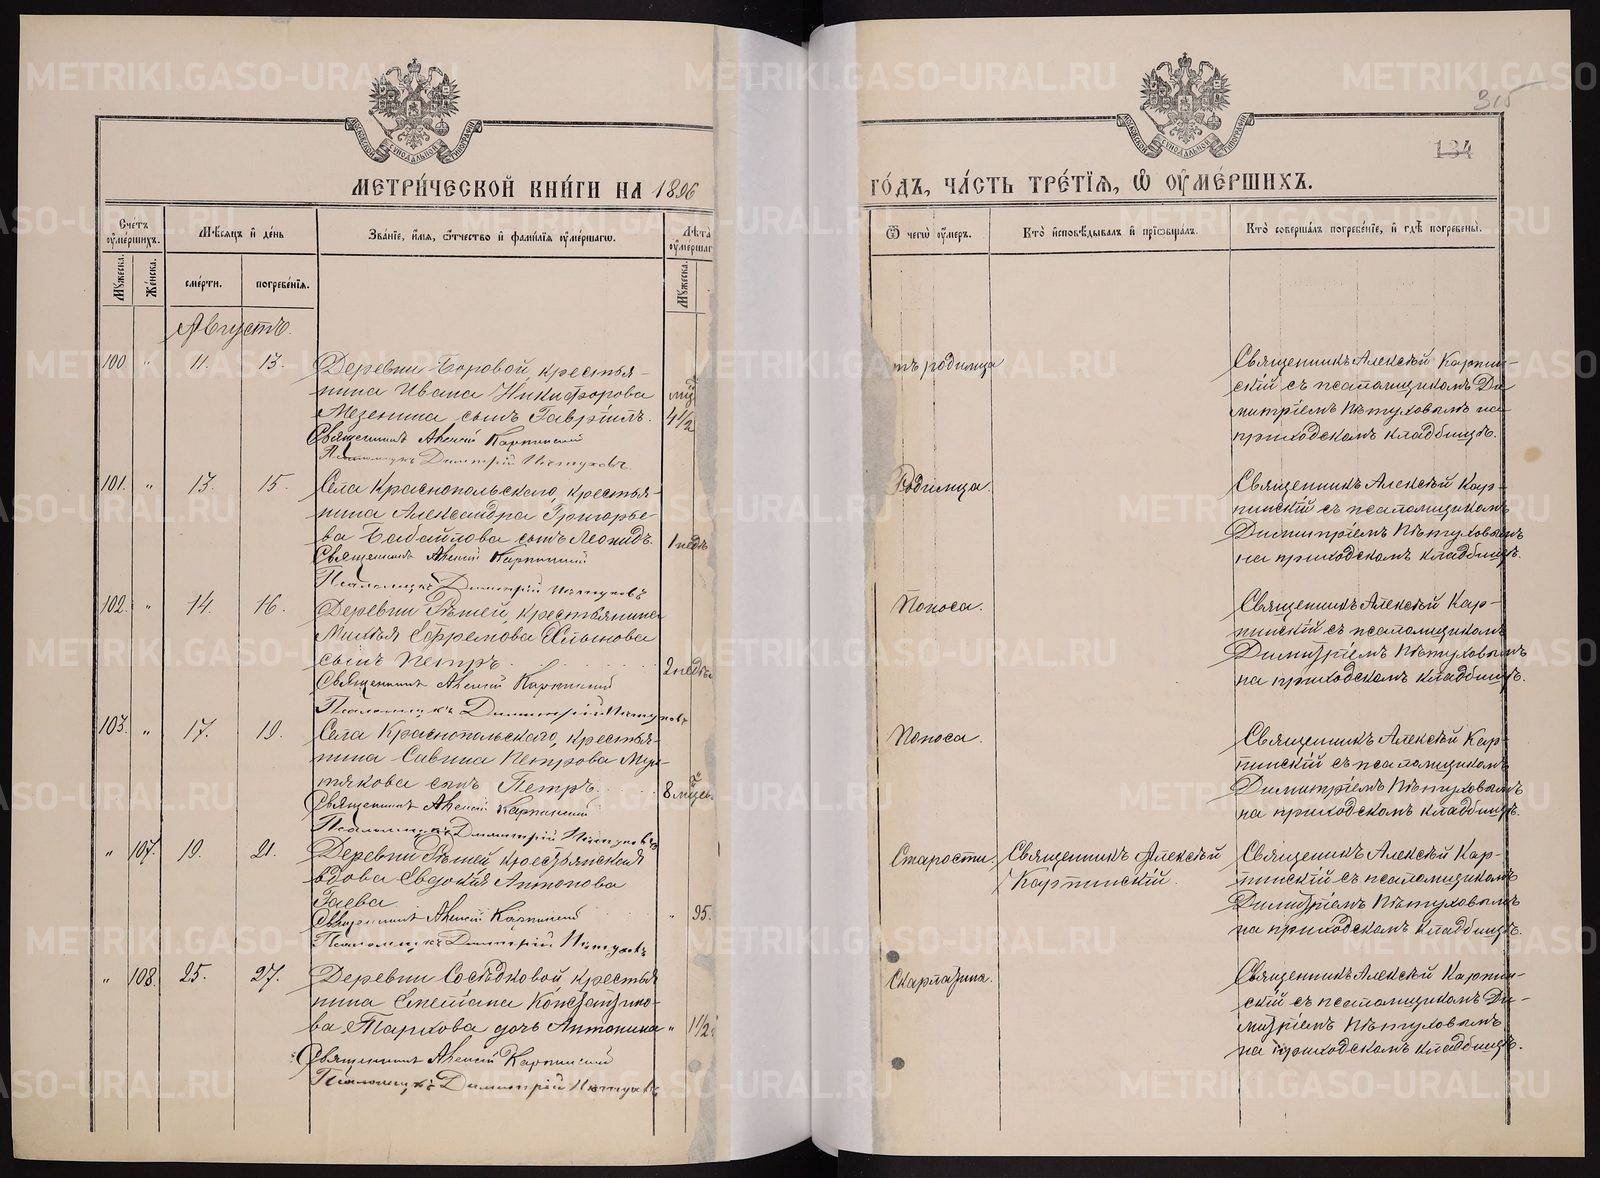 315
134
МЕТРИ́ЧЕСКОЙ КНИ́ГИ НА 1896
ГО́ДЪ, ЧА́СТЬ ТРЕ́ТІѦ, Ѡ҆ ОУ҆МЕ́РШИХЪ.
Сче́тъ оу҆ме́ршихъ.
Мѣ́сѧцъ и҆ де́нь
Зва́нїе, и҆́мѧ, ѻ҆́тчество и҆ фами́лїѧ оу҆ме́ршагѡ.
Лѣ́та оу҆ме́ршаг
Ѿ чегѡ̀ оу҆́меръ.
Кто̀ и҆сповѣ́дывалъ и҆ прїѡбща́лъ.
Кто̀ соверша́лъ погребе́нїе, и҆ гдѣ̀ погребены̀.
Мꙋ́жеска.
Же́нска.
сме́рти.
погребе́нїѧ.
Мꙋ́жеска.
Августъ.
100 " 11. 13. Деревни Боровой крестья-
нина Ивана Никифорова
Мезенина сынъ Гавріилъ.
4 1/2
Священникъ Алексій Карпинскій
Псаломщикъ Димитрій Пѣтуховъ.
родимца
Священникъ Алексѣй Карпин-
скій съ псаломщикомъ Ди-
митріемъ Пѣтуховымъ на
приходскомъ кладбищѣ.
101. " 13. 15. Села Краснопольскаго, крестья-
нина Александра Григорье-
ва Бабайлова сынъ Леонидъ.
1 недѣ
Священникъ Алексій Карпинскій
Псаломщикъ Димитрій Пѣтуховъ
Родимца.
Священникъ Алексѣй Кар-
пинскій съ псаломщикомъ
Димитріемъ Пѣтуховымъ
на приходскомъ кладбищѣ.
102. " 14. 16. Деревни Бѣшей, крестьянина
Ефремова
сынъ Петръ.
2 недѣ
Священникъ Алексій Карпинскій
Псаломщикъ Димитрій Пѣтуховъ
Поноса.
Священникъ Алексѣй Кар-
пинскій съ псаломщикомъ
Димитріемъ Пѣтуховымъ
на приходскомъ кладбищѣ.
103. " 17. 19. Села Краснопольскаго, крестья-
нина Саввина Петрова
сынъ Петръ.
8
Священникъ Алексій Карпинскій
Псаломщикъ Димитрій Пѣтуховъ
Поноса.
Священникъ Алексѣй Кар-
пинскій съ псаломщикомъ
Димитріемъ Пѣтуховымъ
на приходскомъ кладбищѣ.
" 107. 19. 21. Деревни Бѣшей крестьянская
вдова Евдокія Антонова
Гаева.
" 95.
Священникъ Алексій Карпинскій
Псаломщикъ Димитрій Пѣтуховъ
Старости.
Священникъ Алексѣй
Карпинскій.
Священникъ Алексѣй Кар-
пинскій съ псаломщикомъ
Димитріемъ Пѣтуховымъ
на приходскомъ кладбищѣ.
" 108. 25. 27. Деревни Сосѣдковой, крестья
нина Степана Константино-
ва Таркова дочь Антонина
" 1 1/2
Священникъ Алексій Карпинскій
Псаломщикъ Димитрій Пѣтуховъ
Скарлатина.
Священникъ Алексѣй Карпин-
скій съ псаломщикомъ Ди-
митріемъ Пѣтуховымъ
на приходскомъ кладбищѣ.
METRIKI.GASO-URAL.RU